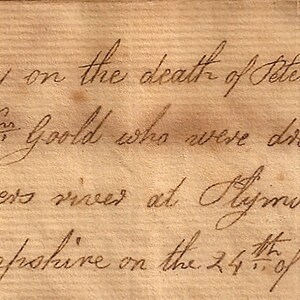 y on the death of Pete
Goold who were dr
ers river at Plym
pshire on the 24th of